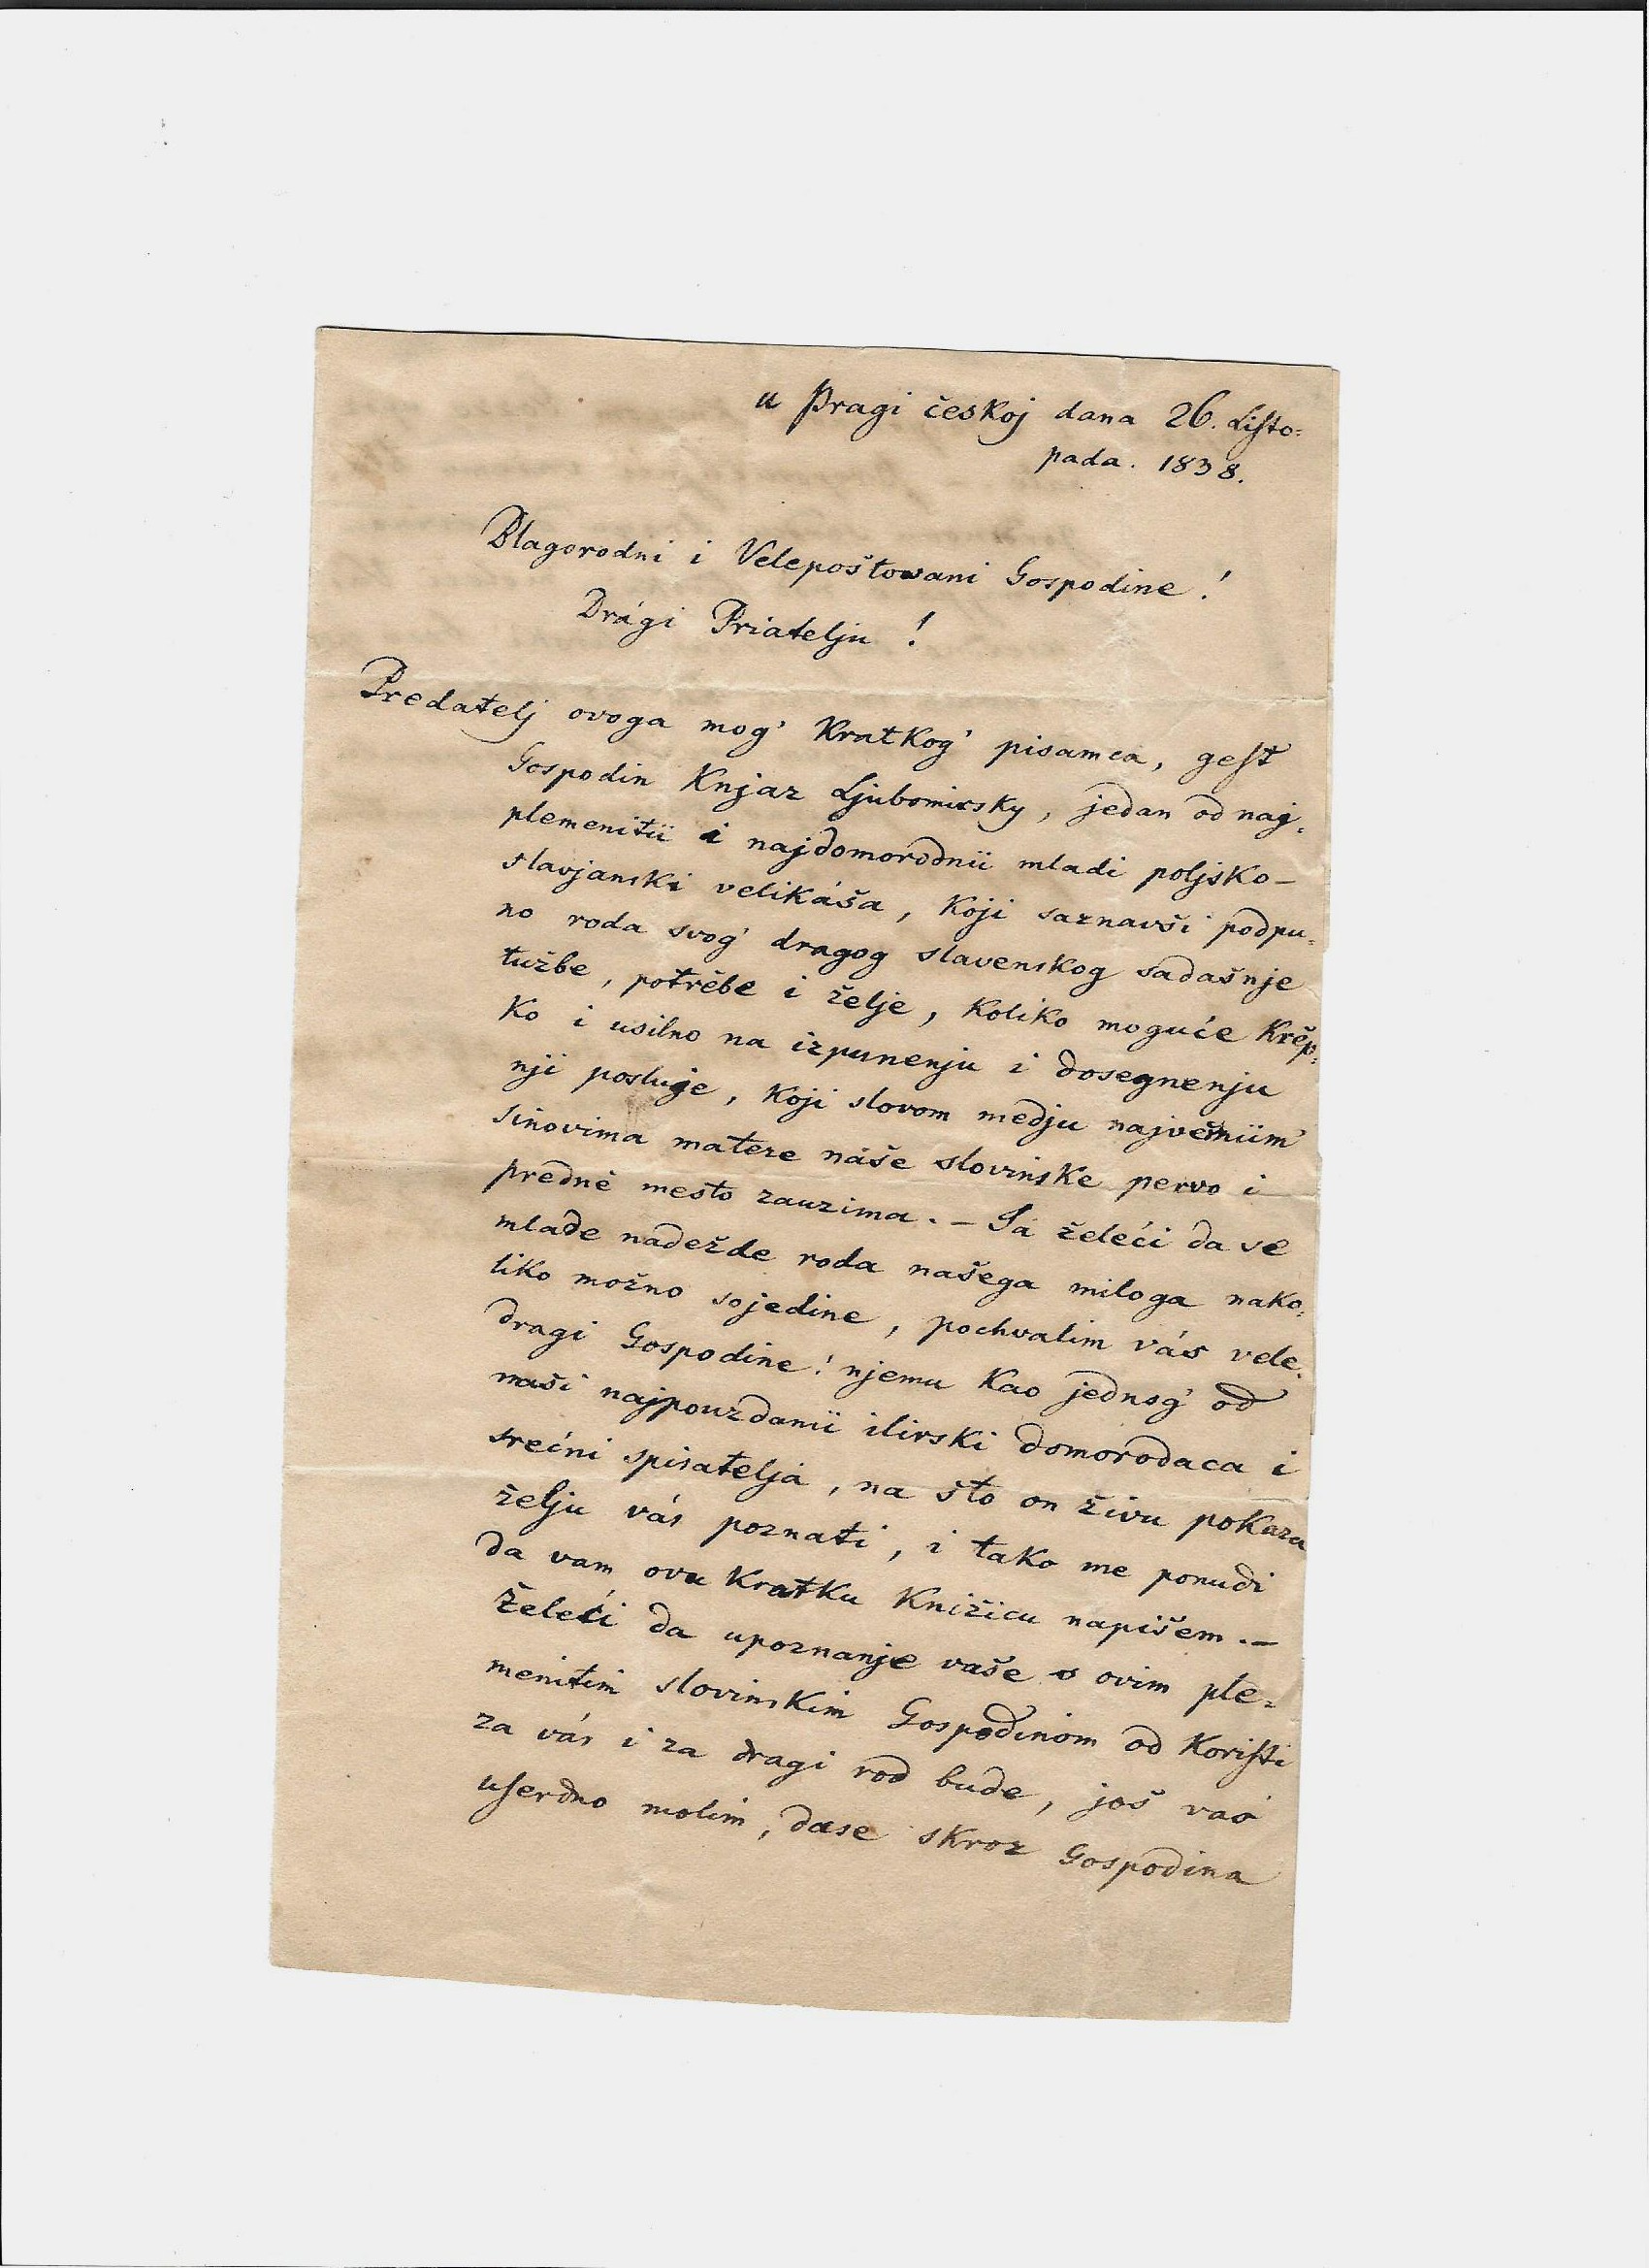 u Pragi českoj dana 26. Listo=
pada. 1838.
Blagorodni i Velepoštovani Gospodine!
Drági Priatelju!
Predatelj ovoga mog' kratkog' pisamca, gest
Gospodin Knjaz Ljubomirsky, jedan od naj=
plemenitii i najdomorodnii mladi poljsko-
slavjanski velikáša, koji saznavši podpu=
no roda svog' dragog slavenskog sadašnje
tužbe, potrěbe i želje, koliko moguće krěp=
ko i usilno na izpunenju i dosegnenju
nji posluje, koji slovom medju
sinovima matere náše slovinske pervo i
predně mesto zauzima. - Já želeći da se
mlade nadežde roda našega miloga nako=
liko možno sojedine, pochvalim vás vele=
dragi Gospodine! njemu kao jednog' od
naši najpouzdanii ilirski domorodaca i
srećni spisateljá, na što on živu pokaza
želju vás poznati, i tako me ponudi
da vam ovu kratku knižicu napišem. -
Želeći da upoznanje vaše s ovim ple=
menitim slovinskim Gospodinom od koristi
za vás i za dragi rod bude, još vas
userdno molim, dase skroz Gospodina